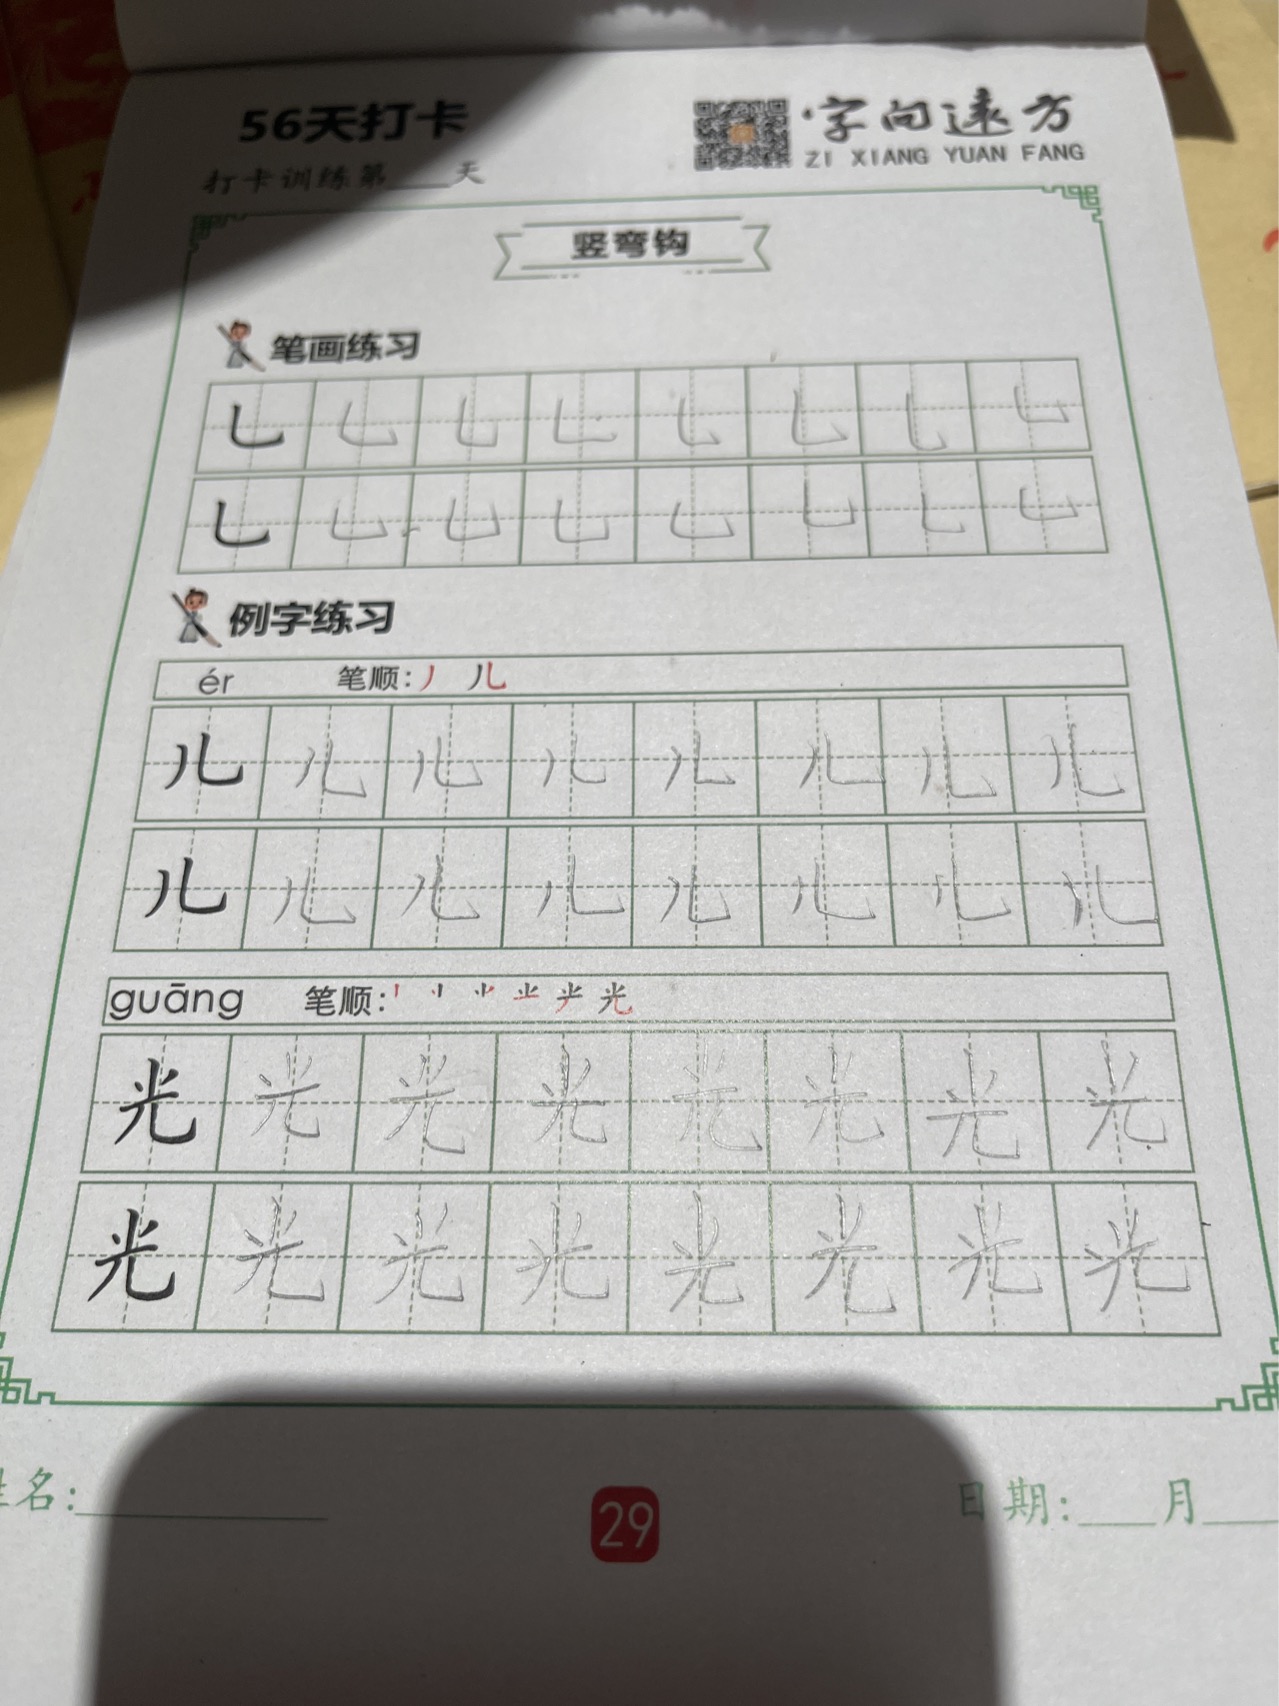 56天打卡
字向远方
ZI XIANG YUAN FANG
打卡训练第___天
竖弯钩
笔画练习
乚 乚 乚 乚 乚 乚 乚 乚
乚 乚 乚 乚 乚 乚 乚 乚
例字练习
ér 笔顺:丿 儿
儿 儿 儿 儿 儿 儿 儿 儿
儿 儿 儿 儿 儿 儿 儿 儿
guāng 笔顺:
光 光 光 光 光 光 光 光
光 光 光 光 光 光 光 光
姓名:
29
日期:___月___